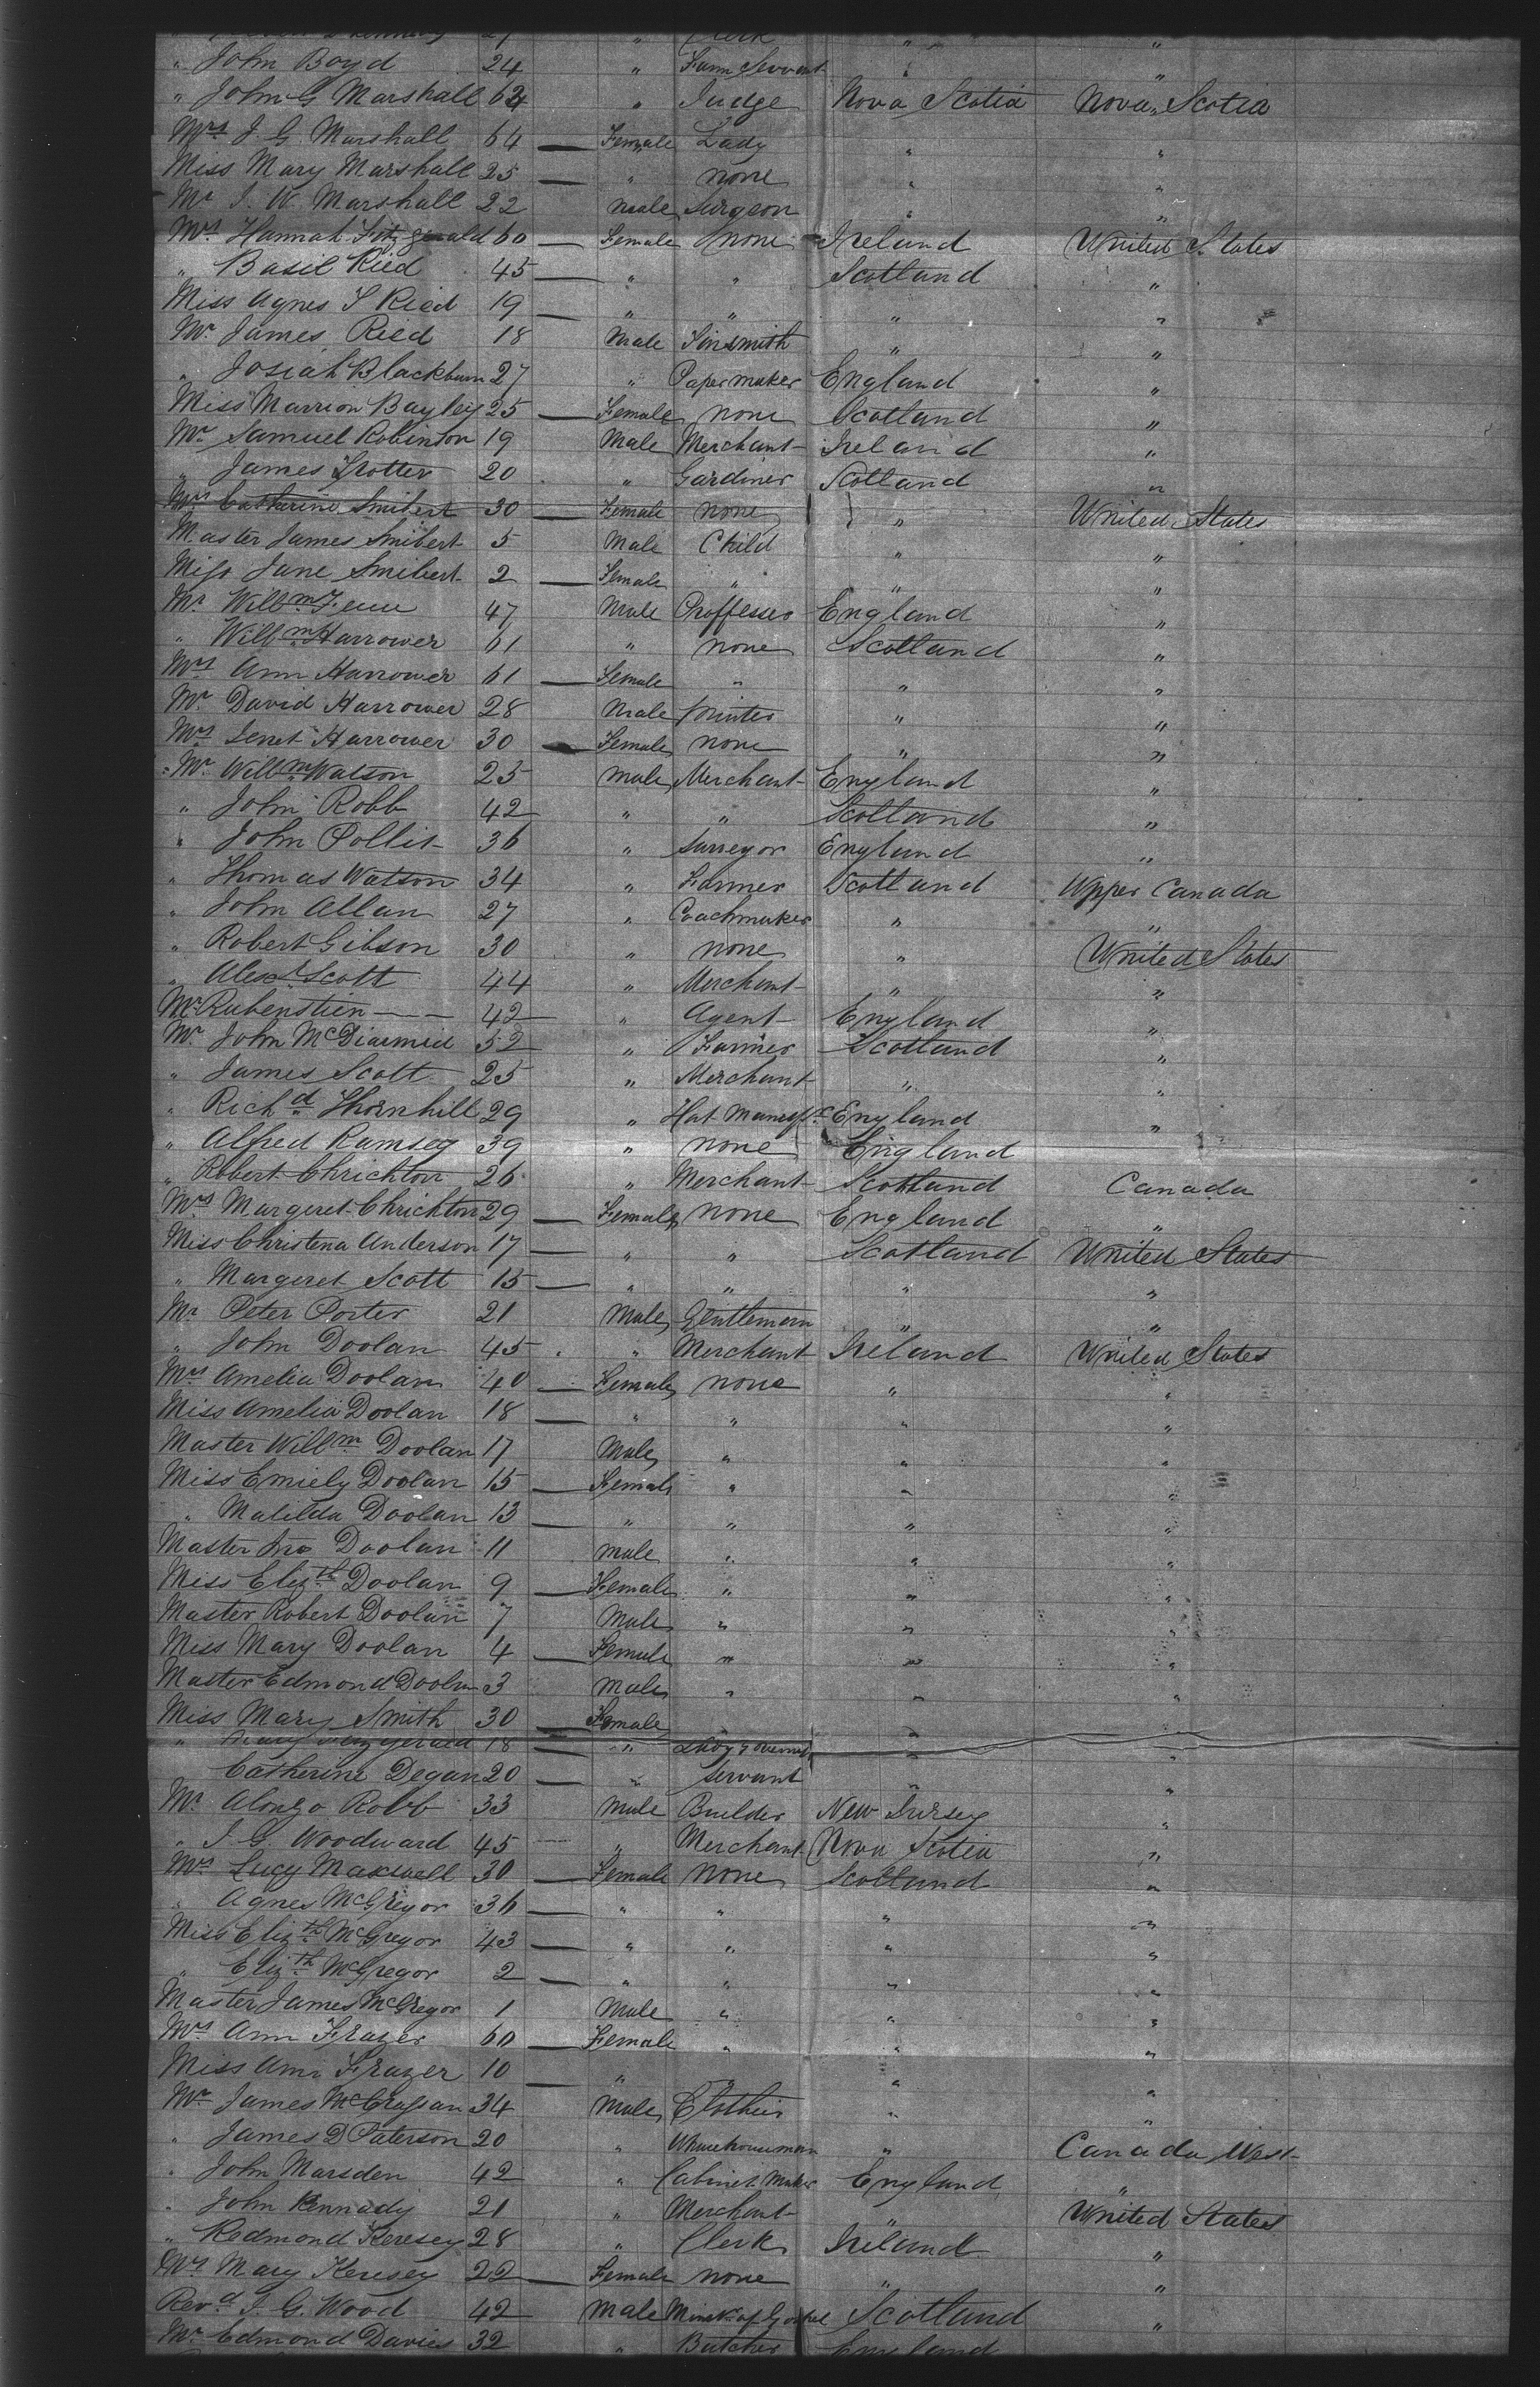 " Clerk " "
" John Boyd 24 " Farm Servant " "
" John G Marshall 62 " Judge Nova Scotia Nova Scotia
Mrs J. G. Marshall 64 — Female Lady " "
Miss Mary Marshall 25 — " none " "
Mr J. W. Marshall 22 Male Surgeon " "
Mrs Hannah Fitzgerald 60 — Female none Ireland United States
" Basil Ried 45 — " " Scotland "
Miss Agnes S Ried 19 — " " " "
Mr. James Ried 18 Male Tinsmith " "
" Josiah Blackburn 27 " Paper maker England "
Miss Marrion Bayley 25 — Female none Scotland "
Mr Samuel Robinson 19 Male Merchant Ireland "
" James Trotter 20 " Gardiner Scotland "
Mrs Catherine Smibert 30 — Female none " United States
Master James Smibert 5 Male Child " "
Miss Jane Smibert 2 — Female " " "
Mr Willm 47 Male Proffesser England "
" Willm Harrower 61 " none Scotland "
Mrs Ann Harrower 61 — Female " " "
Mr David Harrower 28 Male Printer " "
Mrs Jenet Harrower 30 — Female none " "
Mr Willm Watson 25 Male Merchant England "
" John Robb 42 " " Scotland "
" John Pollit 36 " Surveyor England "
" Thomas Watson 34 " Farmer Scotland Upper Canada
" John Allan 27 " Coachmaker " "
" Robert Gibson 30 " none " United States
" Alexr Scott 44 " Merchant " "
Mr Rubenstien — — 42 " Agent England "
Mr. John McDiarmid 52 " Farmer Scotland "
" James Scott 25 " Merchant " "
" Richd Thornhill 29 " Hat Manufr England "
" Alfred Ramsey 39 " none England
" Robert Chrichton 26 " Merchant Scotland Canada
Mrs Margeret Chrichton 29 — Female none England "
Miss Christena Anderson 17 — " " Scotland United States
" Margeret Scott 15 — " " " "
Mr Peter Porter 21 Male Gentleman " "
" John Doolan 45 " Merchant Ireland United States
Mrs Amelia Doolan 40 — Female none " "
Miss Amelia Doolan 18 — " " " "
Master Willm Doolan 17 Male " " "
Miss Emiely Doolan 15 — Female " " "
" Matilda Doolan 13 — " " " "
Master Jno Doolan 11 Male " " "
Miss Elizth Doolan 9 — Female " " "
Master Robert Doolan 7 Male " " "
Miss Mary Doolan 4 — Female " " "
Master Edmond Doolan 3 Male " " "
Miss Mary Smith 30 — Female "
" Mary Fitzgerald 18 — " " "
Catherine Degan 20 — " Servant " "
Mr Alonzo Robb 33 Male Builder New Jursey "
" J. G. Woodward 45 " Merchant Nova Scotia "
Mrs Lucy Maxwell 30 — Female none Scotland "
" Agnes McGregor 36 — " " " "
Miss Elizth McGregor 43 — " " " "
" Elizth McGregor 2 — " " " "
Master James McGregor 1 Male " " "
Mrs Ann Frazer 60 — Female " " "
Miss Ann Frazer 10 — " " " "
Mr James 34 Male Clothier " "
" James D Paterson 20 " Wharehouseman " Canada West
" John Marsden 42 " Cabinet Maker England "
" John Kennady 21 " Merchant " United States
" Redmond Keresey 28 " Clerk Ireland "
Mrs Mary Keresey 22 — Female none " "
Revd J. G. Wood 42 Male Minstr of Gospel Scotland "
Mr Edmond Davies 32 " Butcher England "